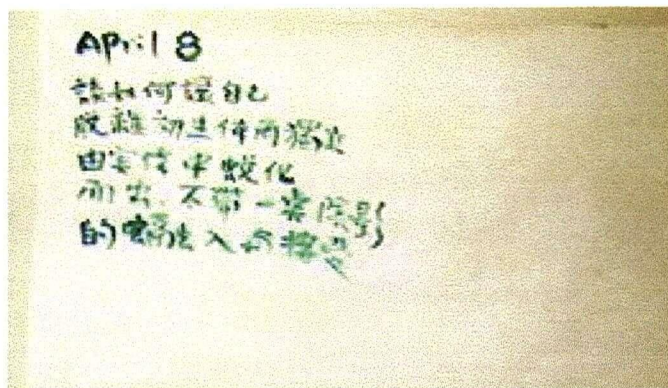 April 8
該如何讓自己
脫離初生体而獨立
中蛻化
而出 不帶一 陰影
的 入